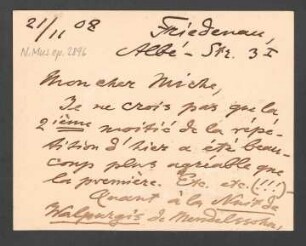 21/11 08
Friedenau,
Albé-Str. 3 I
N.Mus.ep. 2896
Mon cher Miche,
Je ne crois pas que la
2ième moitié de la répé-
tition d'hier a été beau-
coup plus agréable que
la première. Etc. etc. (!!!)
Quant à la Nuit de
Walpurgis de Mendelssohn,